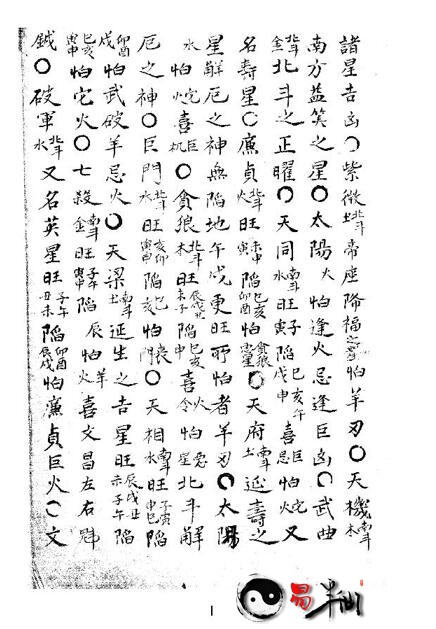 諸星吉凶○紫微北斗土帝座降福之星怕羊刃○天機南斗木
南方益算之星○太陽火怕逢火忌逢巨凶○武曲
北斗金北斗之正曜○天同南斗水旺寅子陷巳亥戌申午喜巨忌怕火陀又
名壽星○廉貞北斗火旺未申寅陷巳亥卯酉怕貪狼○天府南斗土延壽之
星解厄之神無陷地午戌更旺所怕者羊刃○太陽
水怕火陀喜巨机○貪狼北斗木旺辰戌丑未子陷巳亥申喜火令怕星北斗解
厄之神○巨門北斗水旺亥卯寅申陷巳怕喪○天相南斗水旺子寅申巳陷
卯酉戌怕武破羊忌火○天梁南斗土延生之吉星旺辰戌丑未子午陷
巳亥寅申怕它火○七殺南斗金旺子午寅申陷辰怕羊喜文昌左右魁
鉞○破軍北斗水又名英星旺子午丑未陷卯酉辰戌怕廉貞巨火○文
1
易半仙